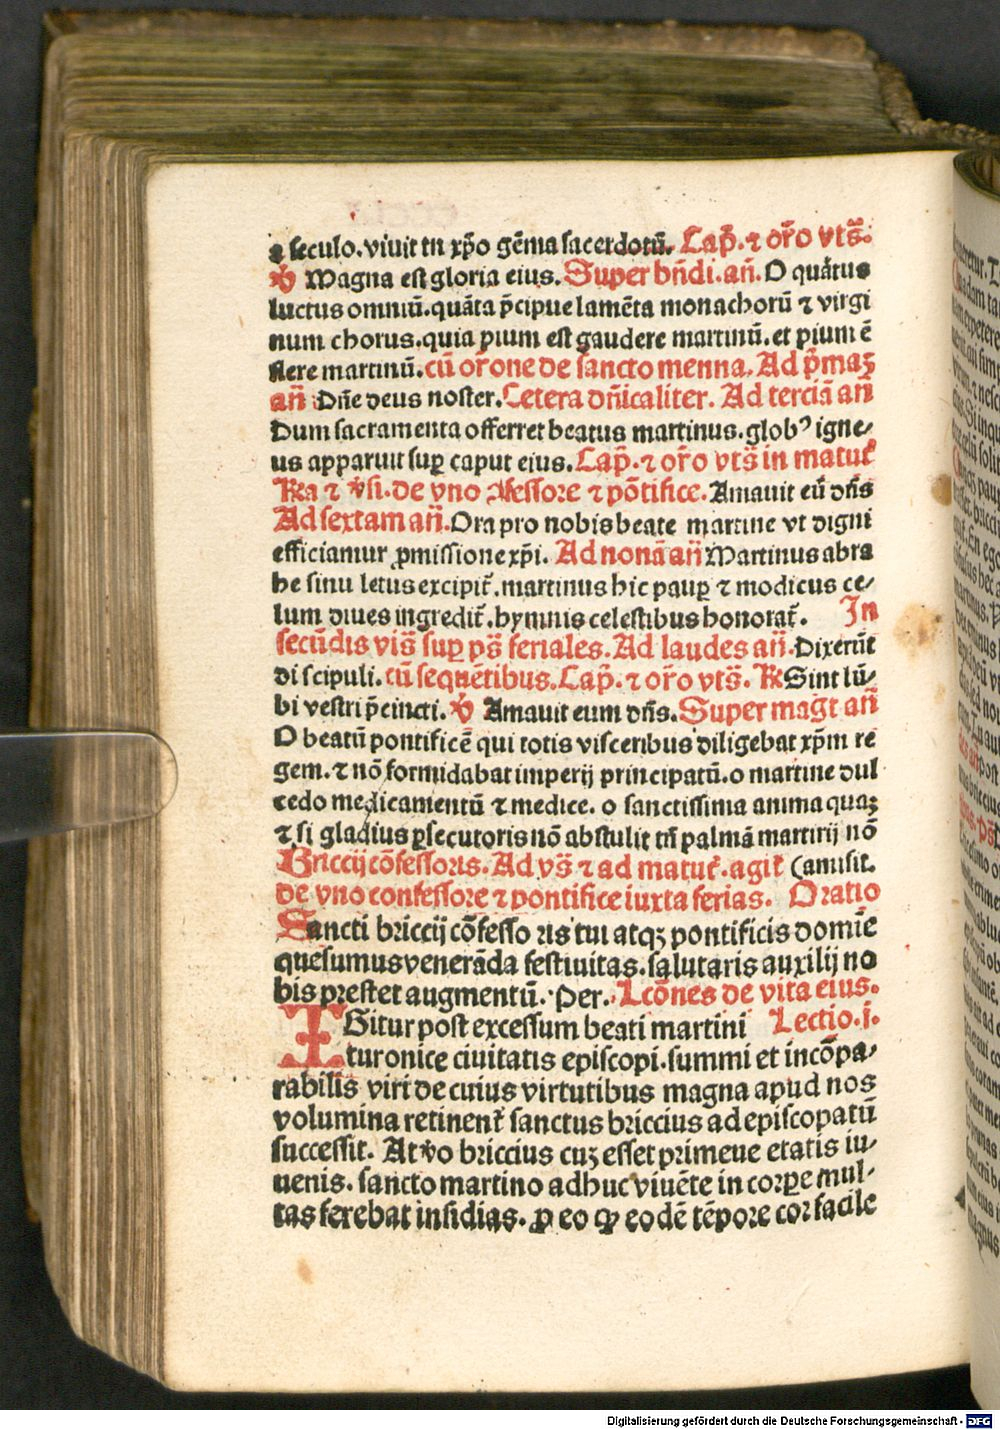 a seculo. viuit in xp̄o gēma sacerdotū. Cap̄. ⁊ or̄o vts̄.
℣ Magna est gloria eius. Super bn̄di. an̄. O quātus
luctus omniū. quāta p̄cipue lamēta monachorū ⁊ virgi
num chorus. quia pium est gaudere martinū. et pium ē
flere martinū. cū or̄one de sancto menna. Ad p̄maꝫ
an̄ Dn̄e deus noster. Cetera dn̄icaliter. Ad terciā an̄
Dum sacramenta offerret beatus martinus. globꝰ igne⸗
us apparuit suꝑ caput eius. Cap̄. ⁊ or̄o vts̄ in matut̄
℞a ⁊ ℣si. de vno ꝯfessore ⁊ pōtifice. Amauit eū dn̄s
Ad sextam an̄. Ora pro nobis beate martine vt digni
efficiamur ꝓmissione xp̄i. Ad nonā an̄ Martinus abra
he sinu letus excipit̄. martinus hic pauꝑ ⁊ modicus ce⸗
lum diues ingredit̄. hymnis celestibus honorat̄. In
secūdis vis̄ suꝑ ps̄ feriales. Ad laudes an̄. Dixerūt
di scipuli. cū sequētibus. Cap̄. ⁊ or̄o vts̄. ℞ Sint lū⸗
bi vestri p̄cincti. ℣ Amauit eum dn̄s. Super magt̄ an̄
O beatū pontificē qui totis visceribus diligebat xp̄m re
gem. ⁊ nō formidabat imperij principatū. o martine dul
cedo medicamentū ⁊ medice. o sanctissima anima quaꝫ
⁊ si gladius ꝑsecutoris nō abstulit tn̄ palmā martirij nō
Briccij cōfessoris. Ad vs̄ ⁊ ad matut̄. agit̄ (amisit.
de vno confessore ⁊ pontifice iuxta ferias. Oratio
Sancti briccij cōfesso ris tui atqꝫ pontificis domīe
quesumus venerāda festiuitas. salutaris auxilij no
bis prestet augmentū. Per. Lcōnes de vita eius.
IGitur post excessum beati martini Lectio. i.
turonice ciuitatis episcopi. summi et incōpa⸗
rabilis viri de cuius virtutibus magna apud nos
volumina retinent̄ sanctus briccius ad episcopatū
successit. At v̄o briccius cuꝫ esset primeue etatis iu⸗
uenis. sancto martino adhuc viuēte in corꝑe mul⸗
tas ferebat insidias. ꝓ eo ꝙ eodē tēpore cor facile
Digitalisierung gefördert durch die Deutsche Forschungsgemeinschaft - DFG